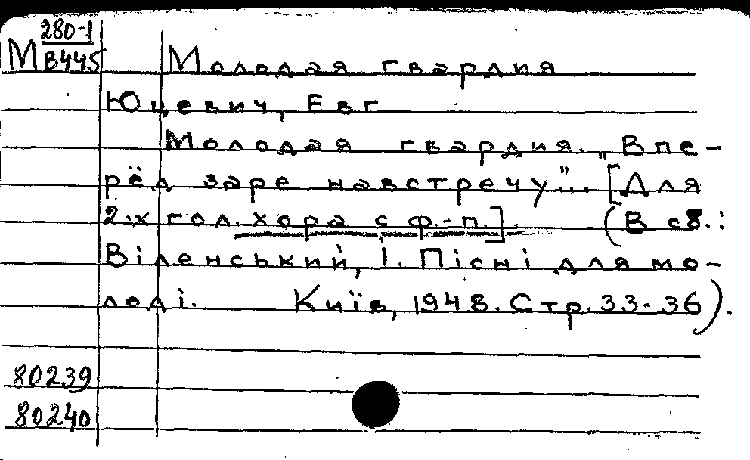 М 280-1
В445
Молодая гвардия
Юцевич, Евг
Молодая гвардия. „Впе-
рёд заре навстречу"... [Для
2-х гол. хора с ф.-п.] (В сб.:
Віленський, І. Пісні для мо-
лоді. Київ, 1948. Стр. 33-36).
80239
80240